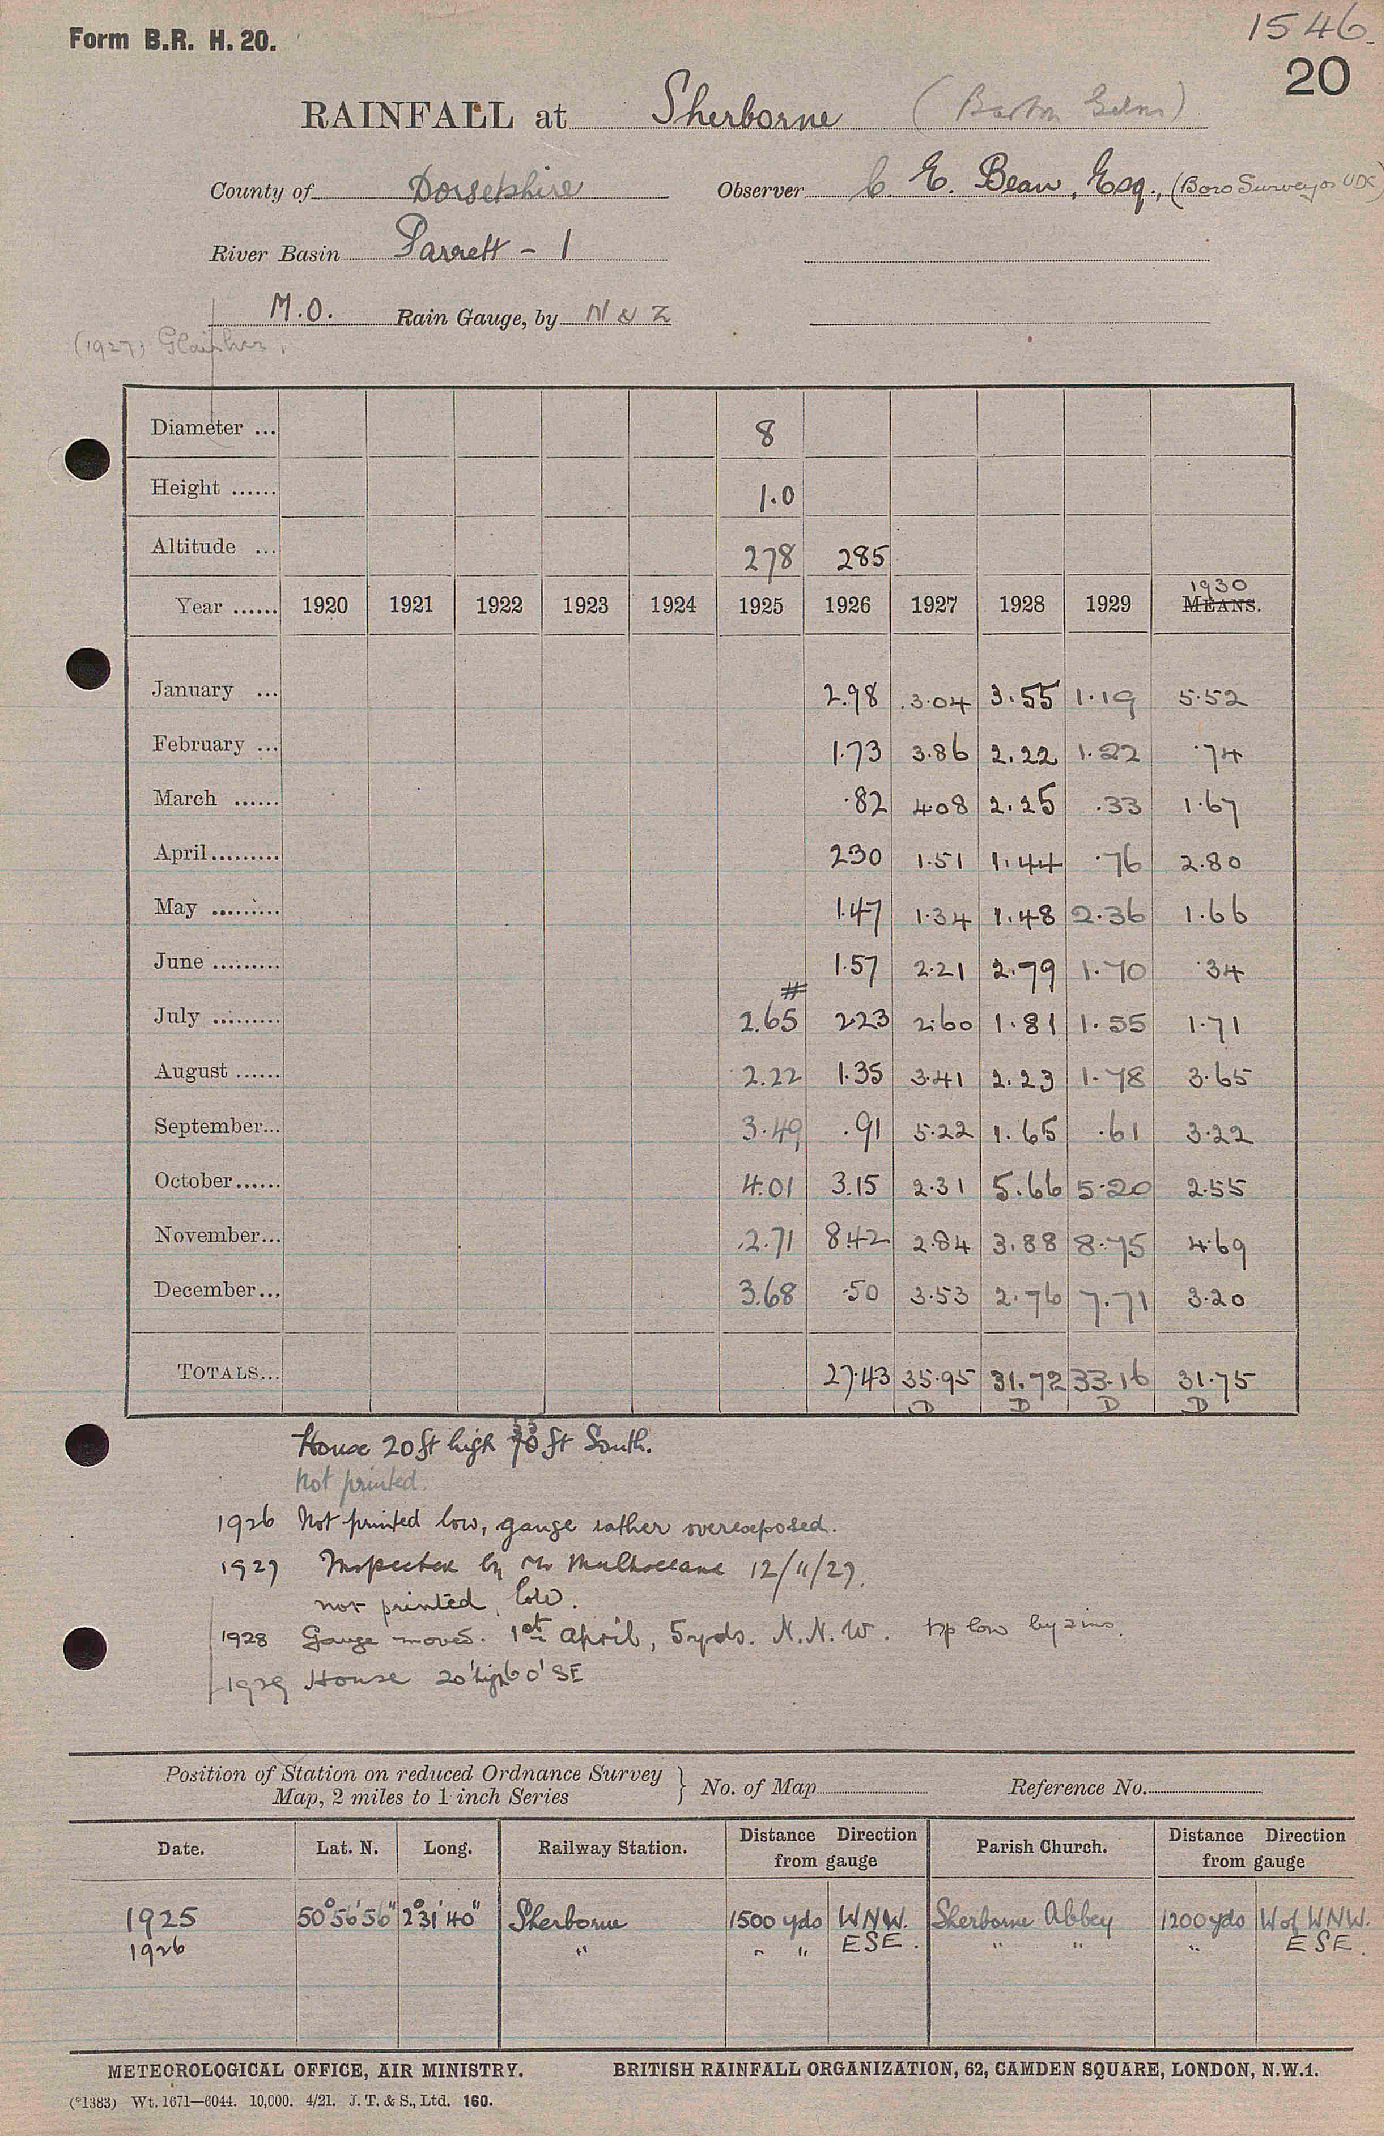 Form B.R. H. 20.
1546.
20
RAINFALL at Sherborne (Barton Gdns)
County of Dorsetshire Observer C. E. Bean, Esq., (Boro Surveyor UDC)
River Basin Parrett - 1
M.O. Rain Gauge, by N & Z
(1927) Glaisher.
Diameter ... 8
Height ...... 1.0
Altitude ... 278 285
Year ...... 1920 1921 1922 1923 1924 1925 1926 1927 1928 1929 1930 MEANS.
January ... 2.98 3.04 3.55 1.19 5.52
February ... 1.73 3.86 2.22 1.22 .74
March ...... .82 4.08 2.25 .33 1.67
April......... 2.30 1.51 1.44 .76 2.80
May ......... 1.47 1.34 1.48 2.36 1.66
June ......... 1.57 2.21 2.79 1.70 .34
#
July ......... 2.65 2.23 2.60 1.81 1.55 1.71
August ...... 2.22 1.35 3.41 2.23 1.78 3.65
September... 3.49 .91 5.22 1.65 .61 3.22
October...... 4.01 3.15 2.31 5.66 5.20 2.55
November... 2.71 8.42 2.84 3.88 8.75 4.69
December... 3.68 .50 3.53 2.76 7.71 3.20
TOTALS... 27.43 35.95 31.72 33.16 31.75
D D D D
House 20 ft high ft South.
Not printed.
1926 Not printed low, gauge rather overexposed.
1927 Inspected by Mr 12/11/27.
not printed, low.
1928 Gauge moved. 1st April, 5 yds. N.N.W. top low by 2 ins.
1929 House 20' high 60' SE
Position of Station on reduced Ordnance Survey
Map, 2 miles to 1 inch Series } No. of Map Reference No.
Date. Lat. N. Long. Railway Station. Distance Direction from gauge Parish Church. Distance Direction from gauge
1925 50° 56' 56" 2° 31' 40" Sherborne 1500 yds WNW. Sherborne Abbey 1200 yds W of WNW.
1926 " " " ESE. " " " ESE.
METEOROLOGICAL OFFICE, AIR MINISTRY. BRITISH RAINFALL ORGANIZATION, 62, CAMDEN SQUARE, LONDON, N.W.1.
(*1383) Wt. 1671—6044. 10,000. 4/21. J. T. & S., Ltd. 160.